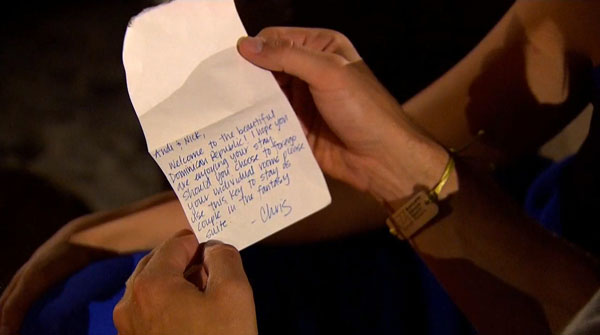 Andi & Nick,
Welcome to the beautiful
Dominican Republic! I hope you
are enjoying your stay.
Should you choose to forego
your individual rooms, please
use this key to stay as
couple in the fantasy
suite. - Chris